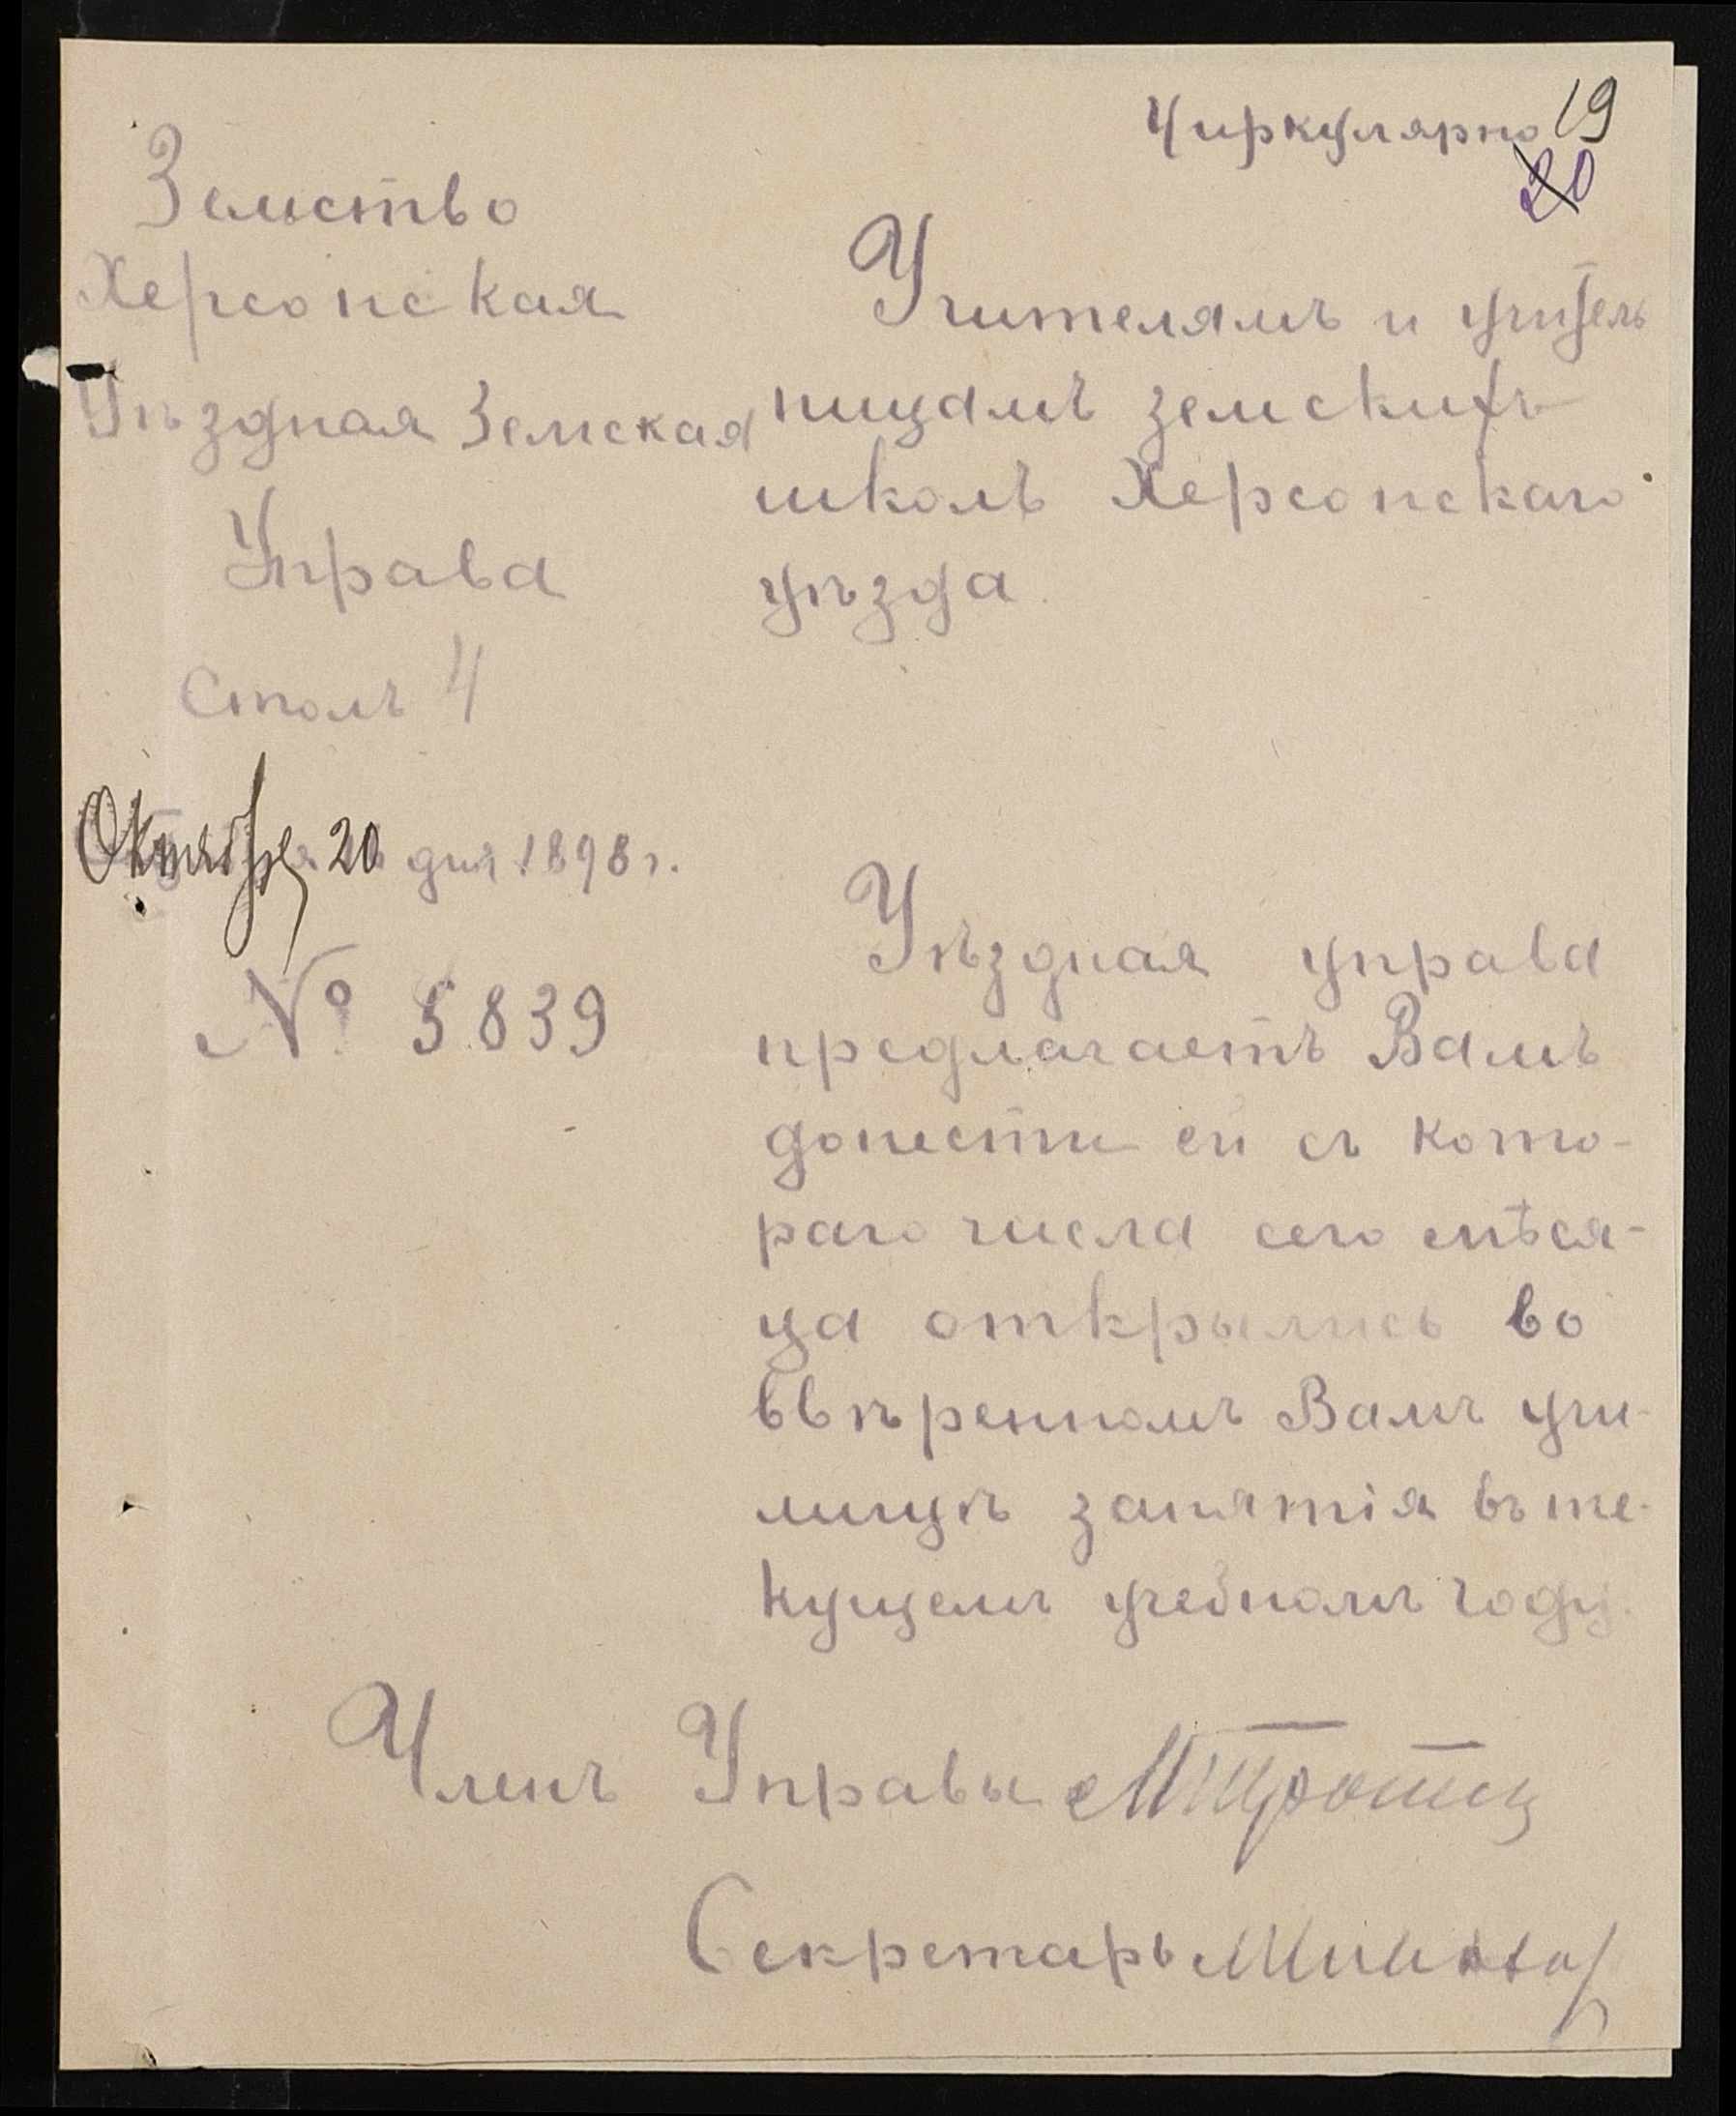 Циркулярно 19
20
Земство
Херсонская
Уѣздная Земская
Управа
Столъ 4
Октября 20 дня 1898 г.
№ 5839
Учителямъ и учитель
ницамъ земскихъ
школъ Херсонскаго
уѣзда
Уѣздная управа
предлагаетъ Вамъ
донести ей съ кото-
раго числа сего мѣся-
ца открылись во
ввѣренномъ Вамъ учи-
лищѣ занятія въ те-
кущемъ учебномъ году.
Членъ Управы
Секретарь